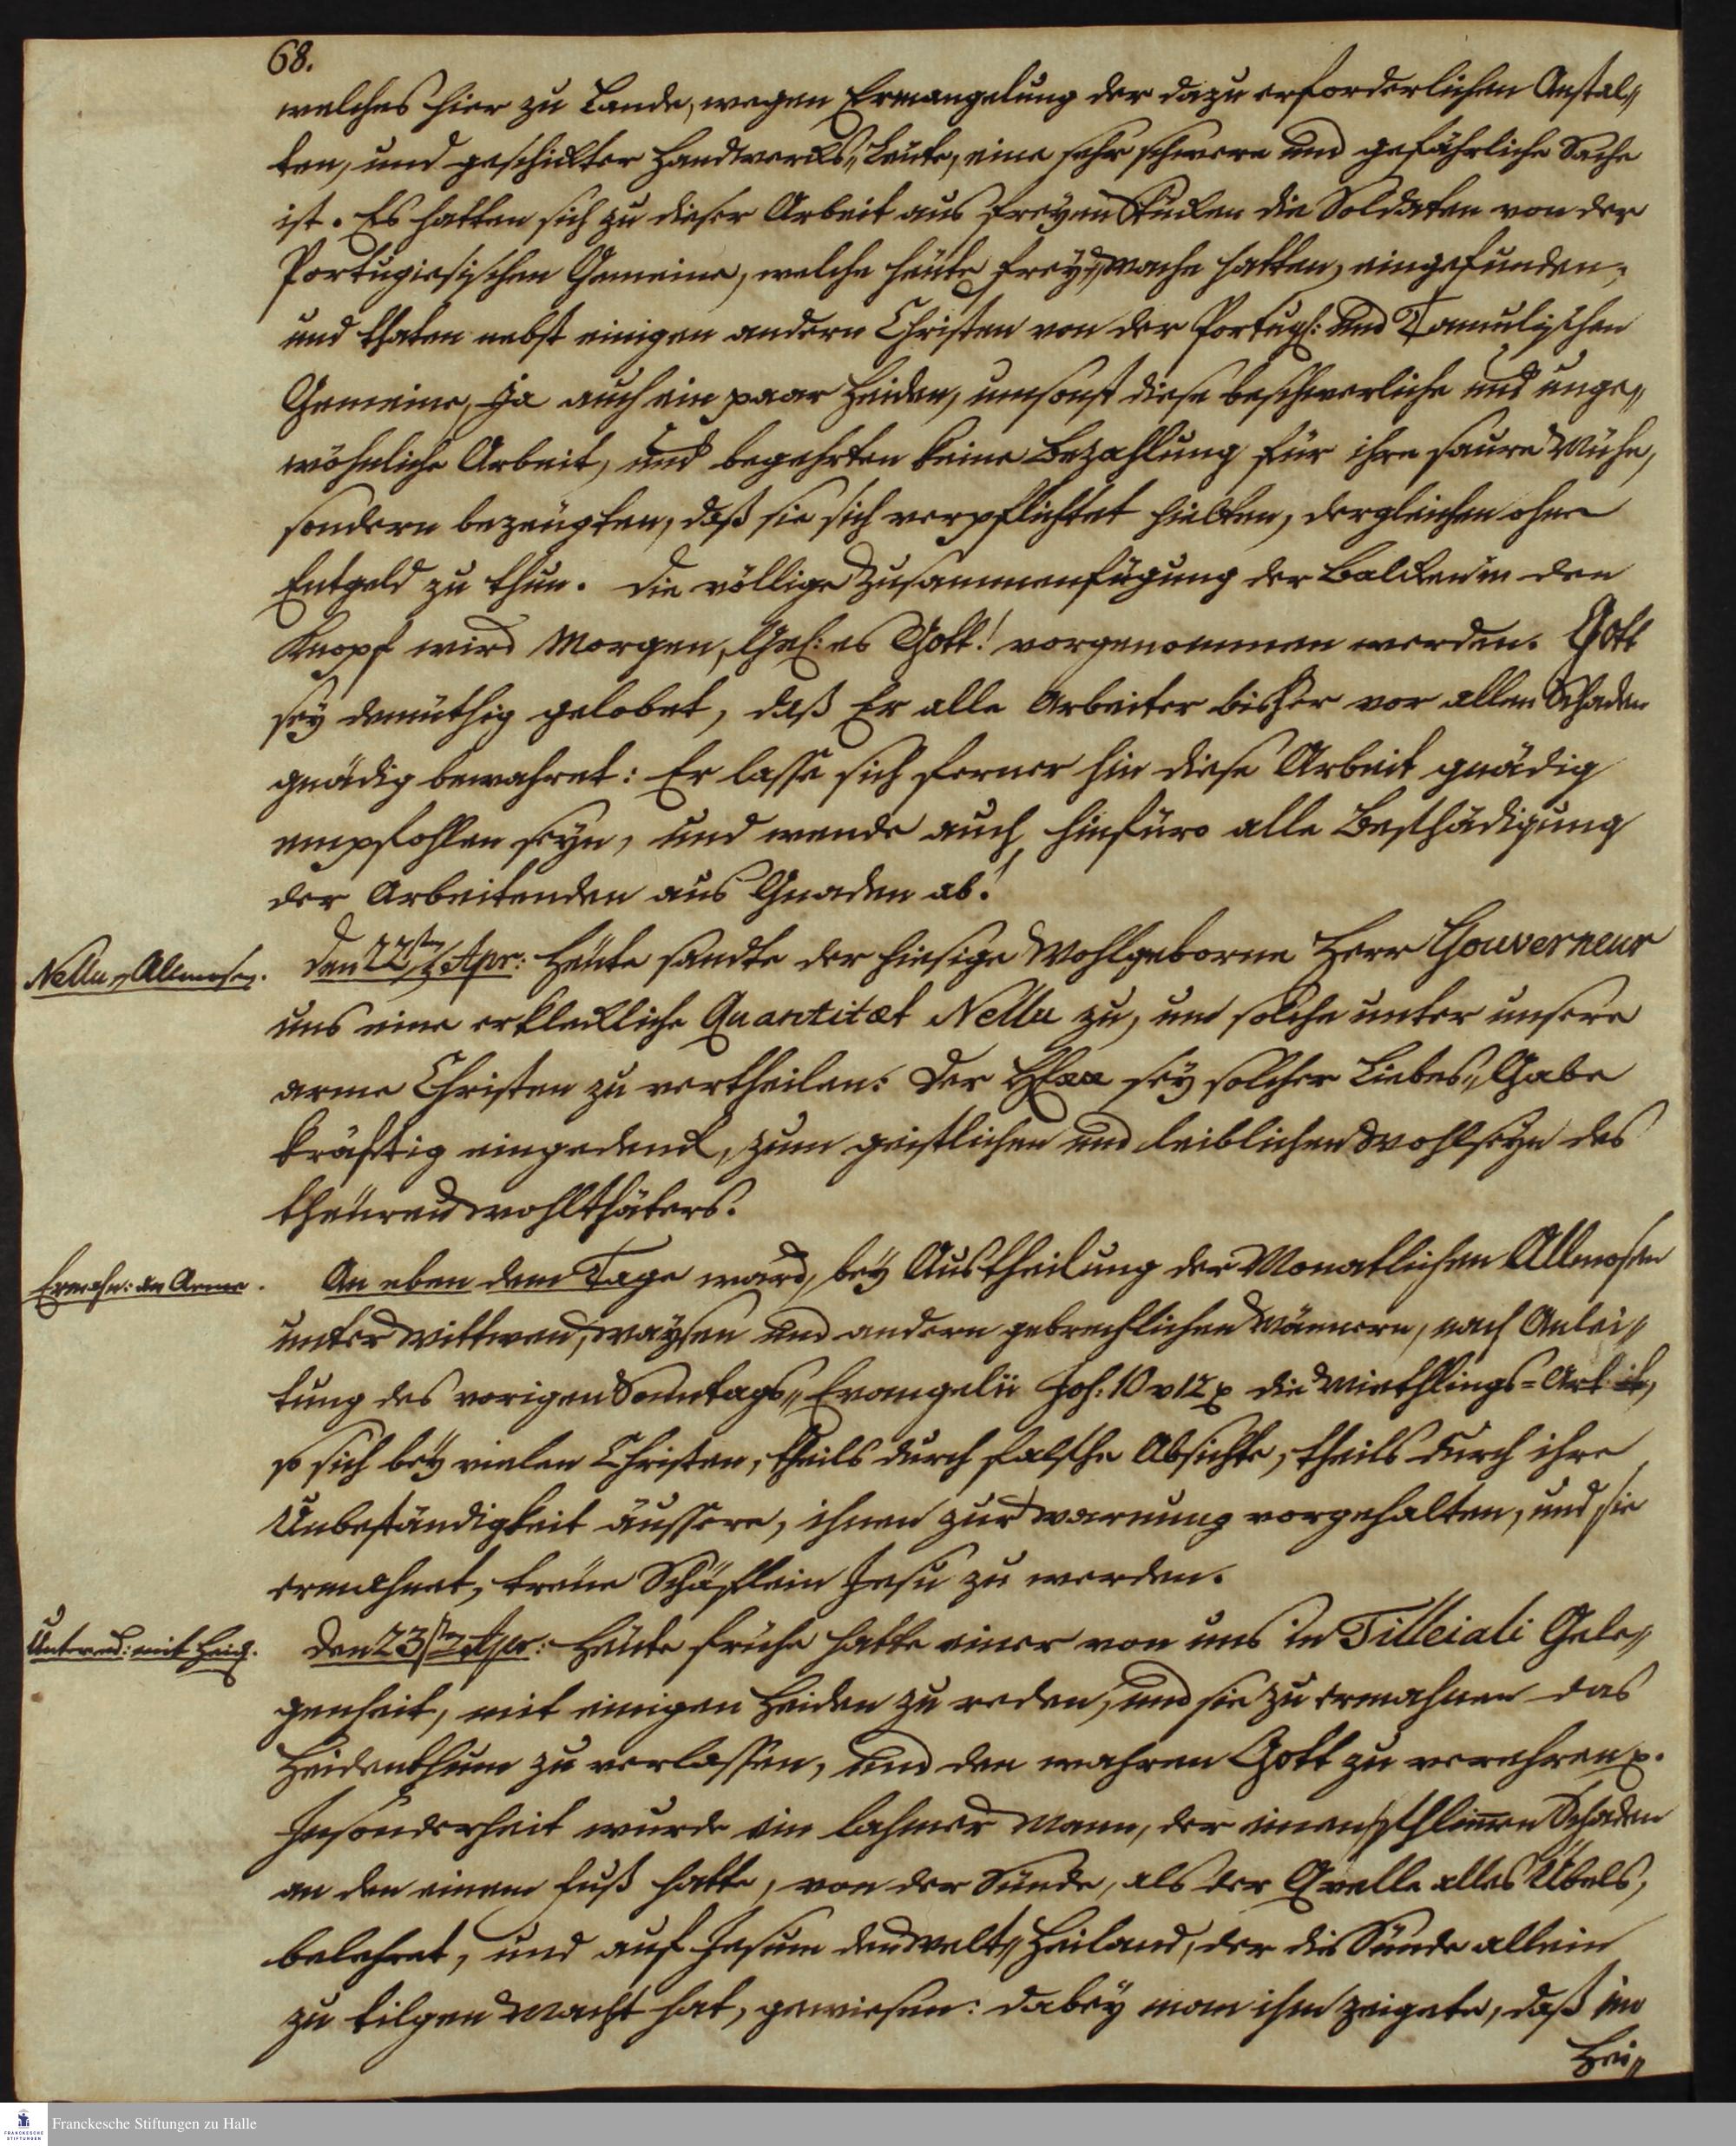 68.
welches hier zu Lande, wegen Ermangelung der dazu erforderlichen Anstal„
ten, und geschickter Handwercks„Leüte, eine sehr schwere und gefährliche Sache
ist. Es hatten sich zu dieser Arbeit aus freyen Stücken die Soldaten von der
Portugiesischen Gemeine, welche heüte frey„Wache hatten, eingefunden,
und thaten nebst einigen andern Christen von der Portugs: und Tamulischen
Gemeine, ja auch ein paar Heiden, umsonst diese beschwerliche und unge„
wöhnliche Arbeit, und begehrten keine Bezahlung für ihre saure Mühe,
sondern bezeügten, daß sie sich verpflichtet hielten, dergleichen ohne
Entgeld zu thun. Die völlige Zusammenfügung der Balcken in den
Knopf wird Morgen, Gel: es Gott! vorgenommen werden. Gott
sey demüthig gelobet, daß Er alle Arbeiter bisher vor allen Schaden
gnädig bewahret: Er lasse sich ferner hin diese Arbeit gnädig
empfohlen seyn, und wende auch hinfüro alle Beschädigung
der Arbeitenden aus Gnaden ab!
Nellu-Allmosen.
Den 22sten Apr: Heüte sandte der hiesige Wohlgeborne Herr Gouverneur
uns eine erkleckliche Quantitæt Nellu zu, um solche unter unsere
arme Christen zu vertheilen. Der HErr sey solcher Liebes„Gabe
kräftig eingedenck, zum geistlichen und leiblichen Wohlseyn des
theüren Wohlthäters.
Ermahn: an Arme.
An eben dem Tage ward, bey Austheilung der Monatlichen Allmosen
unter Wittwen, Waysen und andern gebrechlichen Männern, nach Anlei„
tung des vorigen Sonntags„Evangelii Joh: 10 v 12 p die Miethlings-Art,
so sich bey vielen Christen, theils durch falsche Absichte, theils durch ihre
Unbeständigkeit äussere, ihnen zur Warnung vorgehalten, und sie
ermahnet, treüe Schäflein Jesu zu werden.
Unterred: mit Heid.
Den 23sten Apr: Heüte frühe hatte einer von uns in Tilleiali Gele„
genheit, mit einigen Heiden zu reden, und sie zu ermahnen das
Heidenthum zu verlassen, und den wahren Gott zu verehren p.
Insonderheit wurde ein lahmer Mann, der einen schlimmen Schaden
an den einem Fuß hatte, von der Sünde, als der Qvelle alles Übels,
belehret, und auf Jesum den Welt„Heiland, der die Sünde allein
zu tilgen Macht hat, gewiesen: dabey man ihm zeigete, daß im
Hei„
Franckesche Stiftungen zu Halle
FRANCKESCHE
STIFTUNGEN